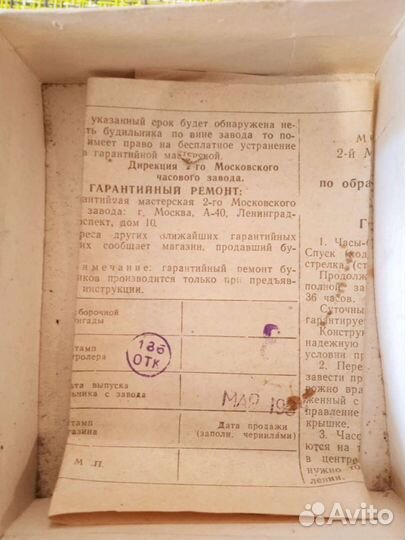 указанный срок будет обнаружена не-
ть будильника по вине завода то по-
имеет право на бесплатное устранение
в гарантийной мастерской.
Дирекция 2-го Московского
часового завода.
ГАРАНТИЙНЫЙ РЕМОНТ:
арантийная мастерская 2-го Московского
завода: г. Москва, А-40, Ленинград-
оспект, дом 10.
реса других ближайших гарантийных
их сообщает магазин, продавший бу-
имечание: гарантийный ремонт бу-
иков производится только при предъяв-
инструкции.
сборочной
игады
тамп
тролера
186
ОТК
ата выпуска
льника с завода
МАР 19
тамп
агазина
Дата продажи
(заполн. чернилами)
М .П.
М
2-й М
по обра
Г
1. Часы-б
Спуск
стрелка, (ст
Продолж
полной зав
36 часов.
Суточны
гарантирует
Конструк
надежную
условии пр
2. Пере
завести пр
рожно вра
женный с
правление
крышке.
3. Часо
ются на т
в центре
нужно
лении.
Avito